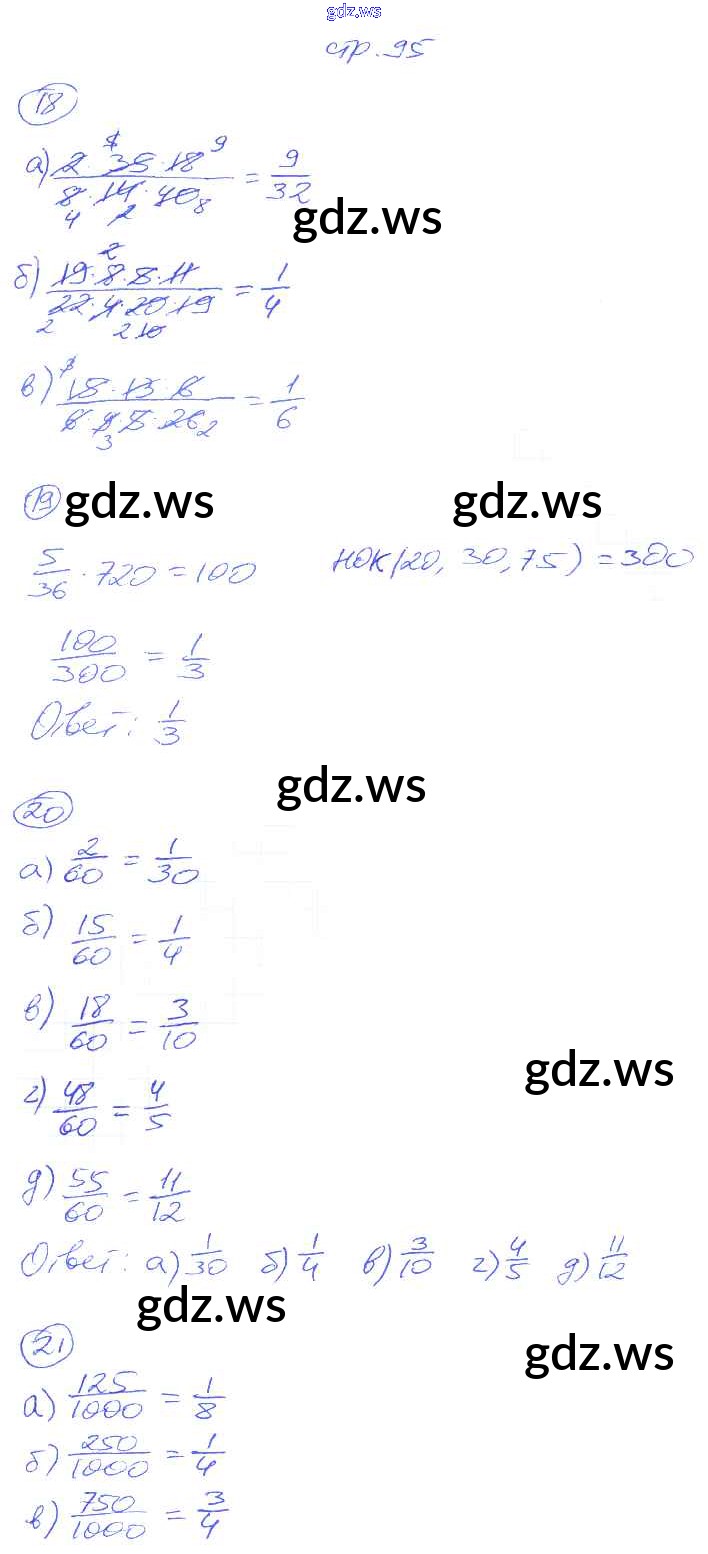 gdz.ws
стр. 95
18
а) 2 · 35 · 18 / 8 · 14 · 40 = 9/32
gdz.ws
б) 19 · 8 · 5 · 11 / 22 · 4 · 20 · 19 = 1/4
в) 15 · 13 · 6 / 6 · 9 · 5 · 26 = 1/6
19 gdz.ws gdz.ws
5/36 · 720 = 100 НОК(20, 30, 75) = 300
100/300 = 1/3
Ответ: 1/3
gdz.ws
20
а) 2/60 = 1/30
б) 15/60 = 1/4
в) 18/60 = 3/10
gdz.ws
г) 48/60 = 4/5
д) 55/60 = 11/12
Ответ: а) 1/30 б) 1/4 в) 3/10 г) 4/5 д) 11/12
gdz.ws
21
gdz.ws
а) 125/1000 = 1/8
б) 250/1000 = 1/4
в) 750/1000 = 3/4